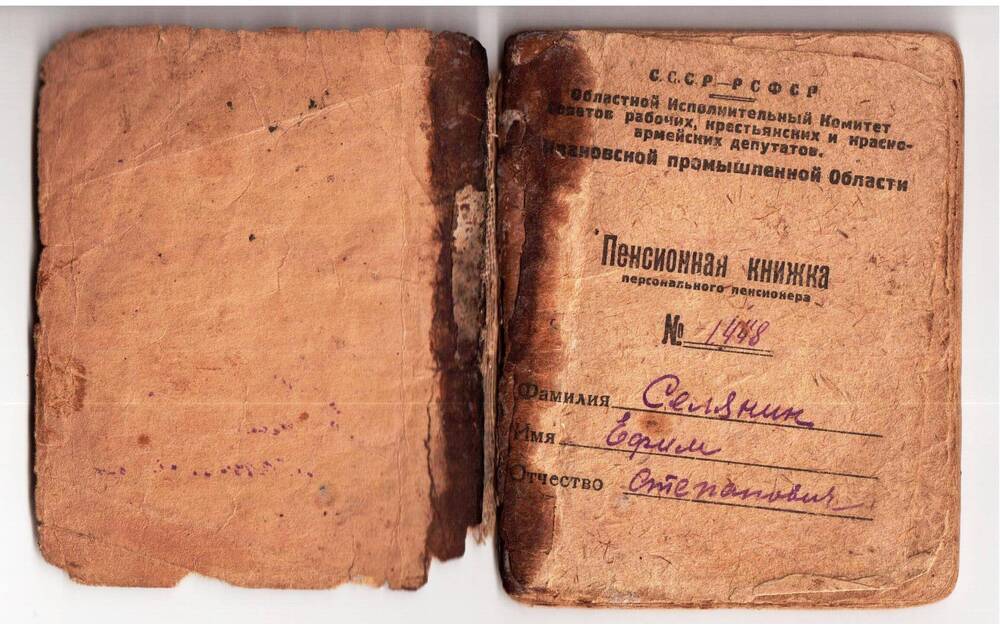 С.С.С.Р.—Р С Ф С Р
Областной Исполнительный Комитет
Советов рабочих, крестьянских и красно-
армейских депутатов.
Ивановской промышленной Области
Пенсионная книжка
персонального пенсионера
№ 1448
Фамилия Селянин
Имя Ефим
Отчество Степанович